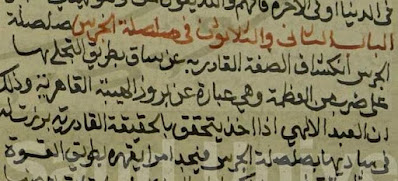 في الدنيا او في الاخرة فافهم والله
الباب الثاني والثلاثون في صلصلة الجرس صلصلة
الجرس انكشاف الصفة القادرية عن ساق بطريق التجلي بها
على ضرب من العظمة وهي عبارة عن بروز الهيبة القاهرية وذلك
ان العبد الالهي اذا اخذ يتحقق بالحقيقة القادرية برزت له
في مباديها بصلصلة الجرس فيجد امرا يقهره بطريق القوة